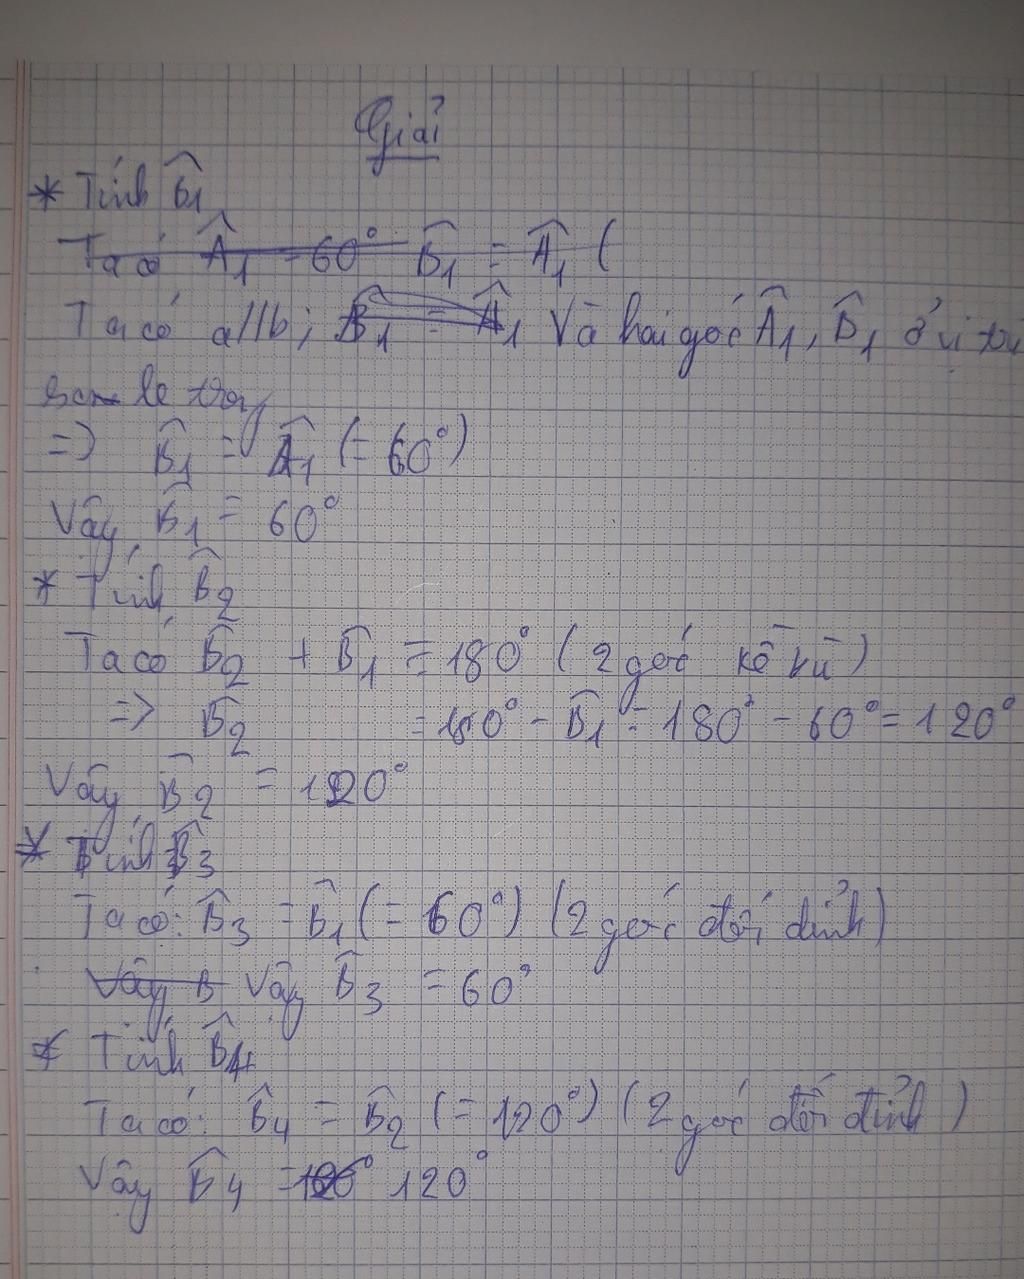 Giải
* Tính B̂1
Ta có Â1 = 60° B̂1 = Â1 (
Ta có a//b; B̂1 = Â1 Và hai góc Â1, B̂1 ở vị trí
so le trong
=> B̂1 = Â1 (= 60°)
Vậy B̂1 = 60°
* Tính B̂2
Ta có B̂2 + B̂1 = 180° (2 góc kề bù)
=> B̂2 = 180° - B̂1 = 180° - 60° = 120°
Vậy B̂2 = 120°
* Tính B̂3
Ta có: B̂3 = B̂1 (= 60°) (2 góc đối đỉnh)
Vậy B Vậy B̂3 = 60°
* Tính B̂4
Ta có: B̂4 = B̂2 (= 120°) (2 góc đối đỉnh)
Vậy B̂4 = 120°